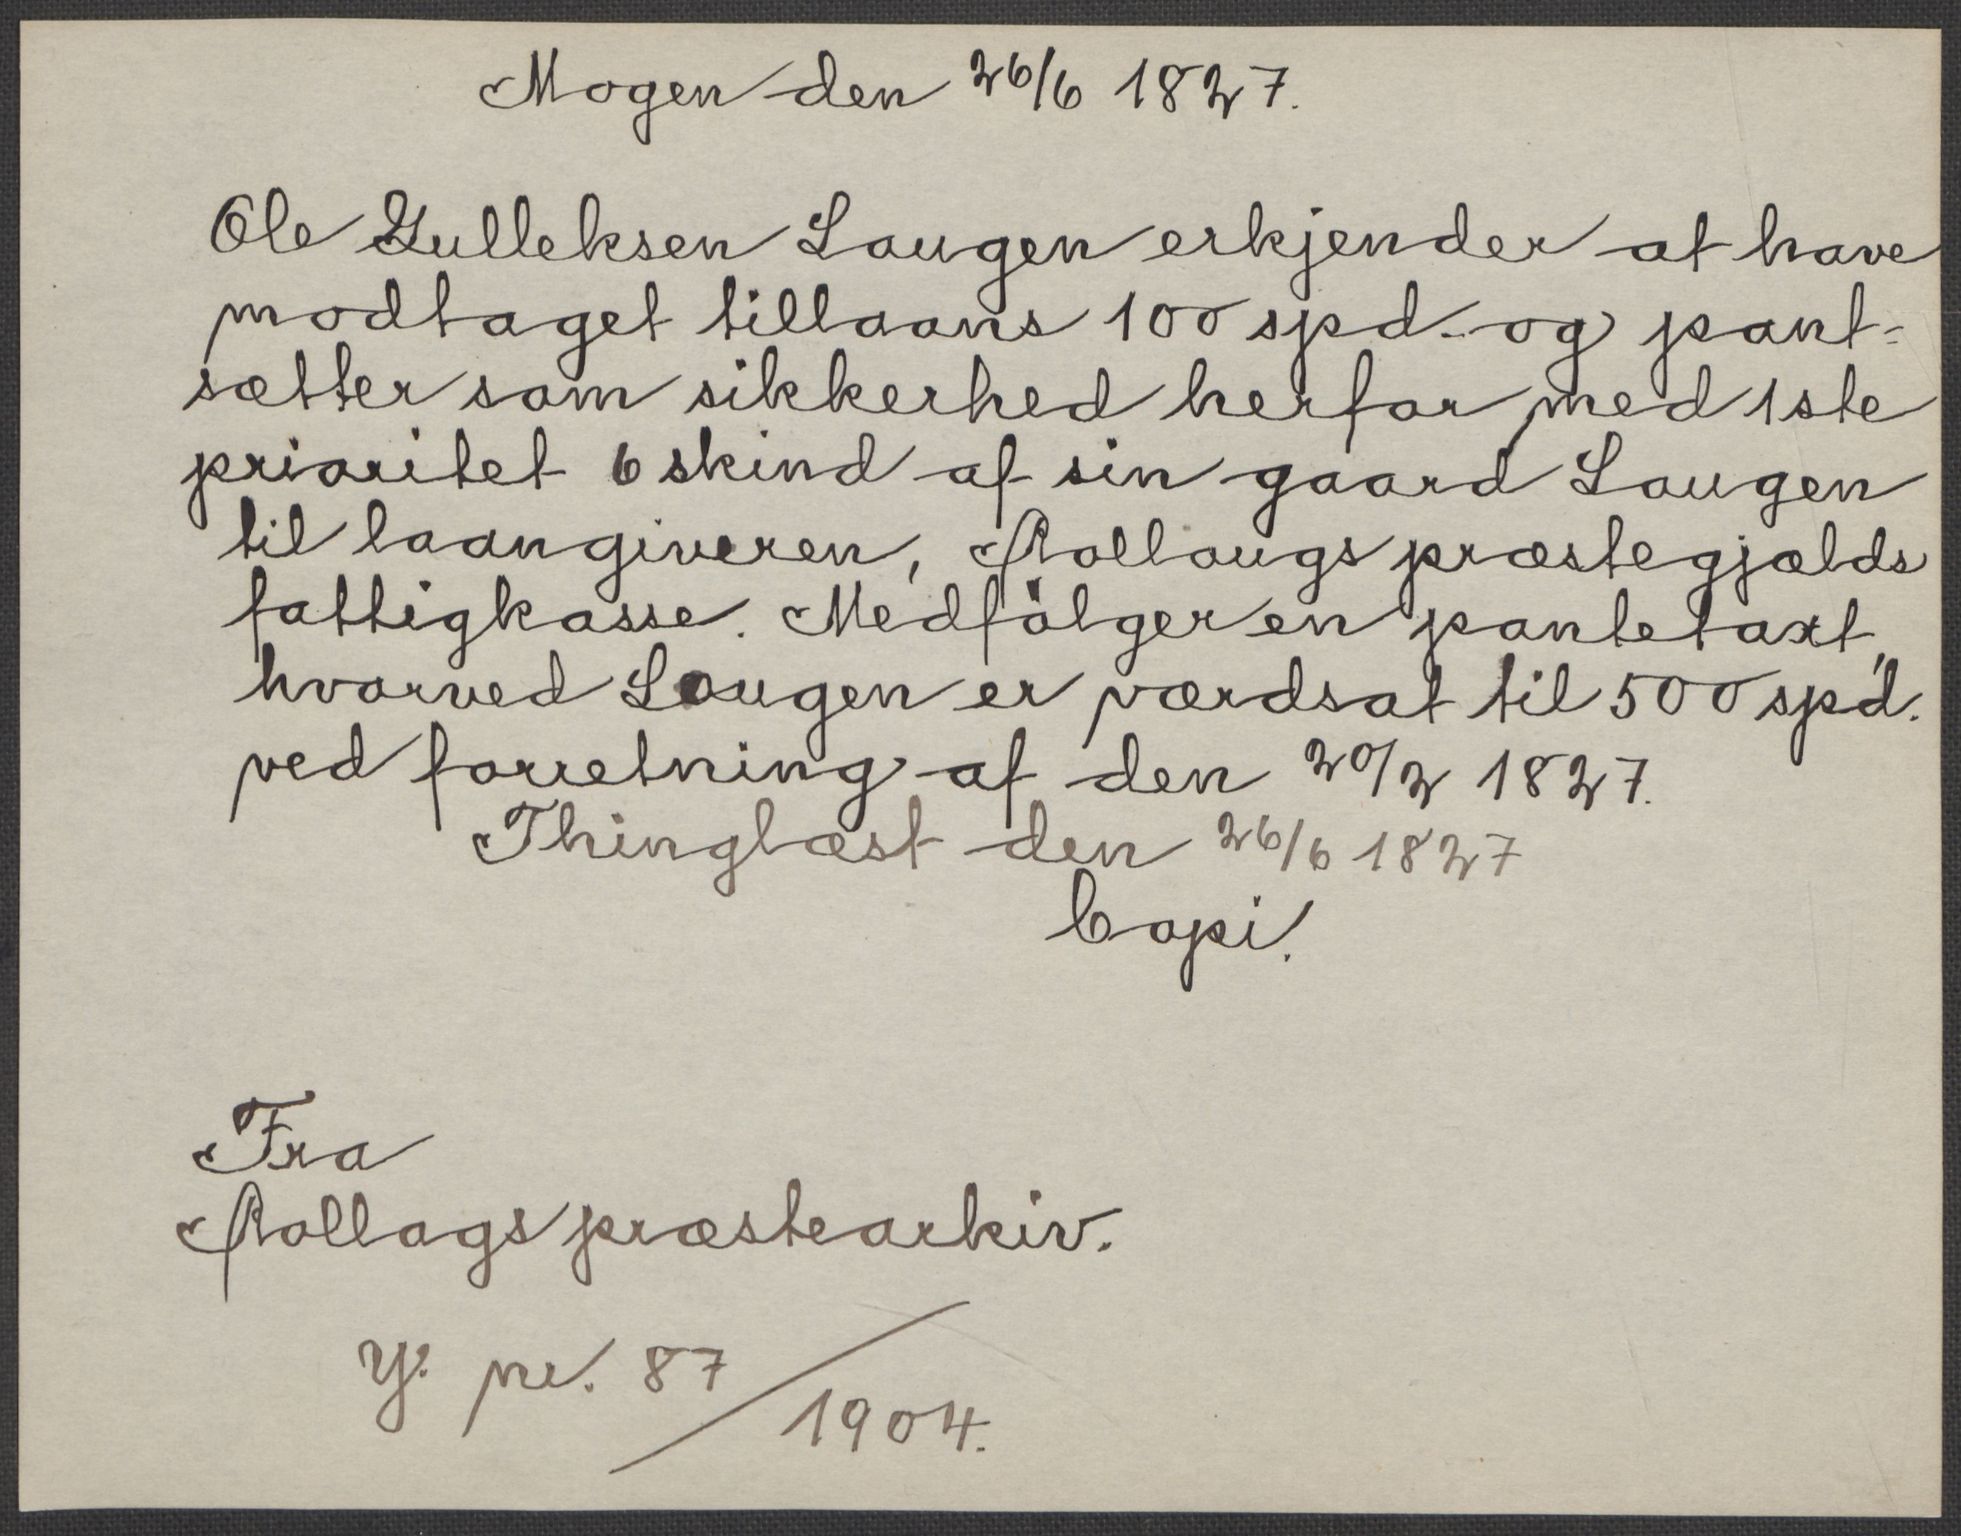 Mogen den 26/6 1827.
Ole Gulleksen Laugen erkjender at have
modtaget tillaans 100 spd. og pant-
sætter som sikkerhed herfor med 1ste
prioritet 6 skind af sin gaard Laugen
til laangiveren, Rollaugs præstegjælds
fattigkasse. Medfølger en pantetaxt,
hvorved Laugen er værdsat til 500 spd.
ved forretning af den 20/2 1827.
Thinglæst den 26/6 1827
Copi.
Fra
Rollags præstearkiv.
Y. nr. 87/1904.